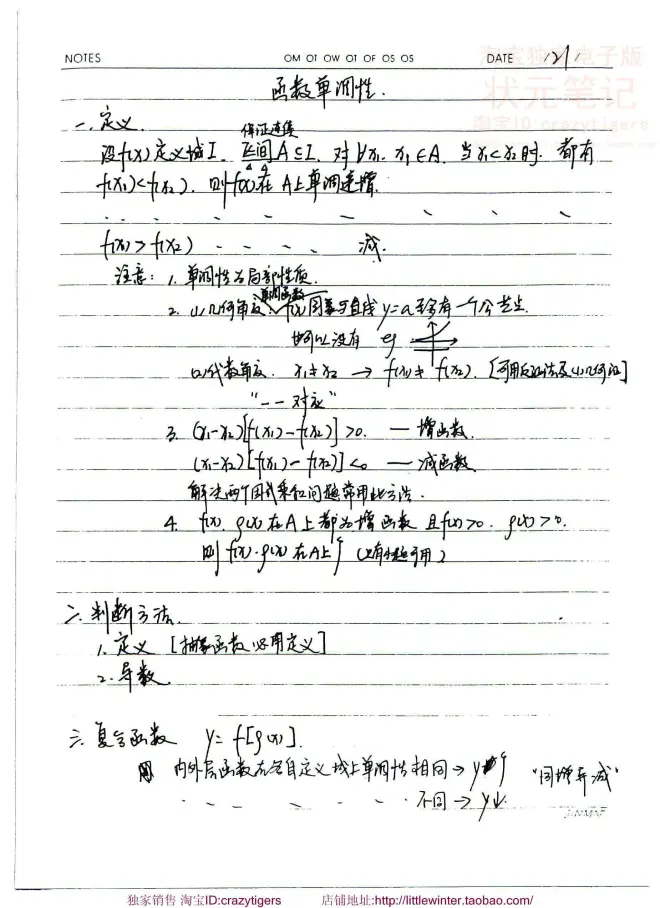 NOTES OM OT OW OT OF OS OS DATE /21/
淘宝独家电子版
状元笔记
淘宝ID:crazytigers
函数单调性.
一. 定义.
保证连续
设f(x)定义域I. 区间A⊆I. 对∀x₁. x₂∈A. 当x₁<x₂时. 都有
f(x₁)<f(x₂). 则f(x)在A上单调递增.
f(x₁)>f(x₂) 减.
注意: 1. 单调性为局部性质.
单调函数
2. (1)几何角度. f(x)图象与直线y=a至多有一个公共点.
也可以没有 eg
(2)代数角度. x₁≠x₂ → f(x₁)≠f(x₂). [可用反证法及(1)几何证]
“一一对应”
3. (x₁-x₂)[f(x₁)-f(x₂)]>0. — 增函数.
(x₁-x₂)[f(x₁)-f(x₂)]<0 — 减函数.
解决两个因式乘积问题常用此方法.
4. f(x). g(x)在A上都为增函数 且f(x)>0. g(x)>0.
则f(x)·g(x)在A上↑
二. 判断方法.
1. 定义 [抽象函数必用定义]
2. 导数.
三. 复合函数 y=f[g(x)].
内外层函数在各自定义域上单调性相同→y↑ “同增异减”
不同→y↓.
独家销售 淘宝ID:crazytigers 店铺地址:http://littlewinter.taobao.com/